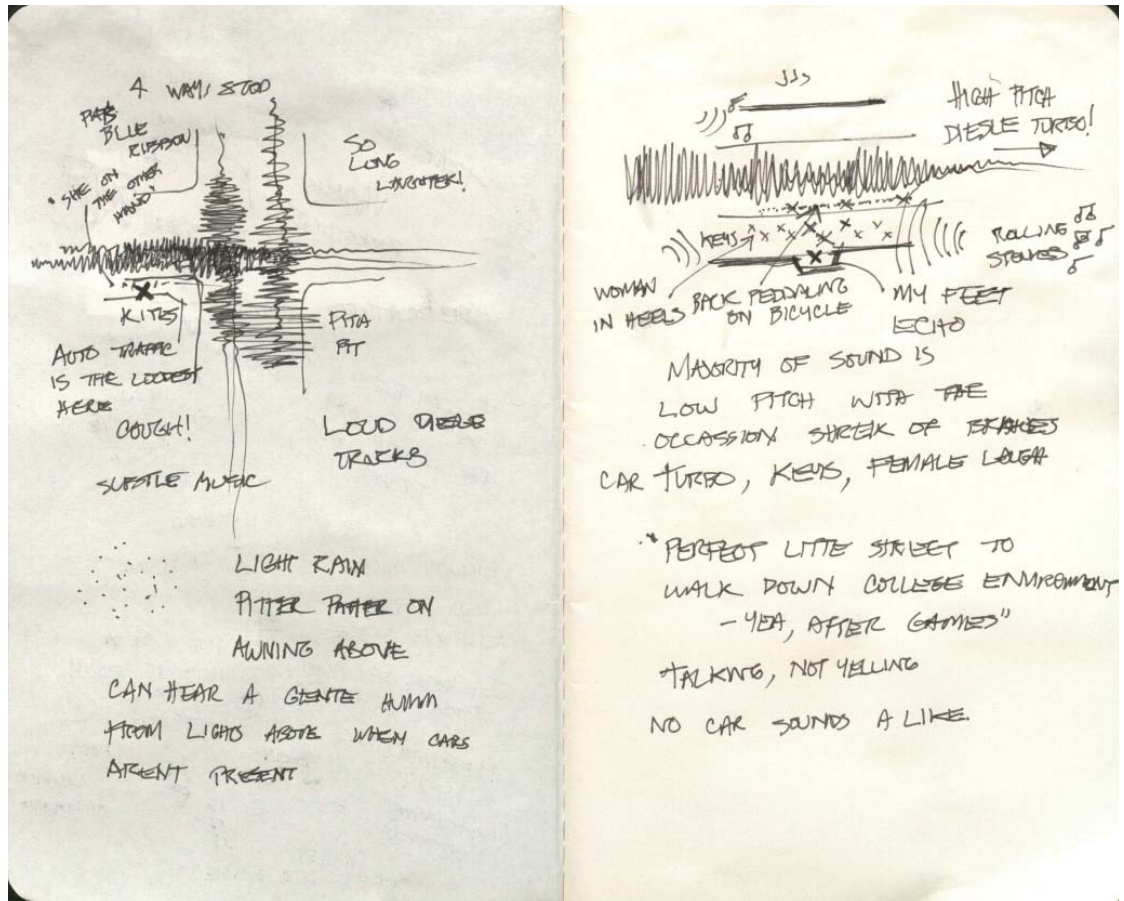 4 WAY STOP
PABS
BLUE
RIBBON
"SHE ON
THE OTHER
HAND"
SO
LONG
LAUGHTER!
KITES
PITA
PIT
AUTO TRAFFIC
IS THE LOUDEST
HERE
COUGH!
LOUD DIESLE
TRUCKS
SUBSTLE MUSIC
LIGHT RAIN
PITTER PATTER ON
AWNING ABOVE
CAN HEAR A GENTE HUMM
FROM LIGHTS ABOVE WHEN CARS
ARENT PRESENT
HIGH PITCH
DIESLE TURBO!
KEYS
ROLLING
STONES
WOMAN
IN HEELS
BACK PEDDALING
ON BICYCLE
MY FEET
ECHO
MAJORITY OF SOUND IS
LOW PITCH WITH THE
OCCASSION SHREIK OF BRAKES
CAR TURBO, KEYS, FEMALE LAUGH
"PERFECT LITTE STREET TO
WALK DOWN COLLEGE ENVIRONMENT
- YEA, AFTER GAMES"
TALKING, NOT YELLING
NO CAR SOUNDS A LIKE.